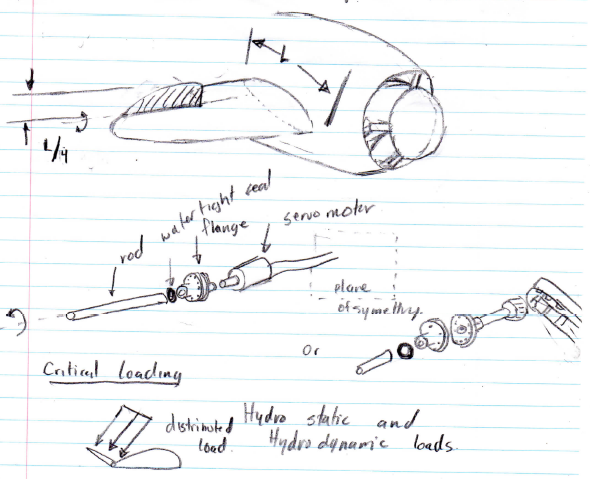 L
L/4
rod
watertight seal
flange
servo motor
plane
of symettry.
Or
Critical loading
distributed
load.
Hydro static and
Hydrodynamic loads.